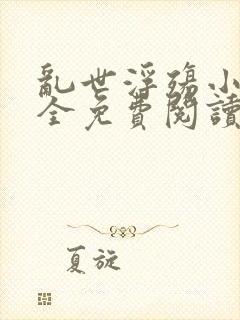 亂世浮殤小
全免費閱讀
夏旋